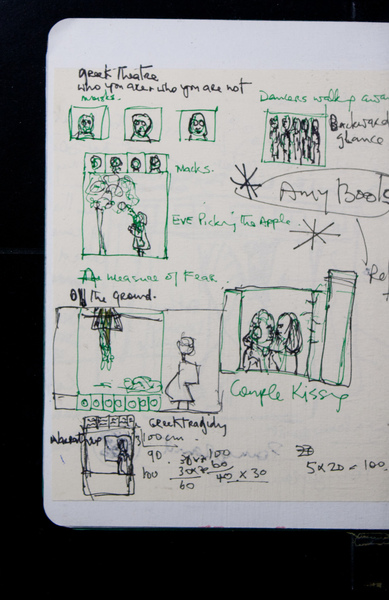 greek theatre
who you are & who you are not
masks.
Dancers walk away
Backward
glance
Masks.
Amy Boots
EVE Picking the Apple
The measure of Fear.
ON the ground.
Couple Kissing
Greek tragedy
100 cm
90
100
60
40 x 30
5 x 20 = 100